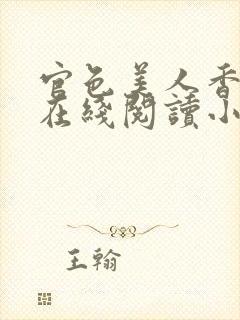 官色美人香
在綫閱讀小
王翰